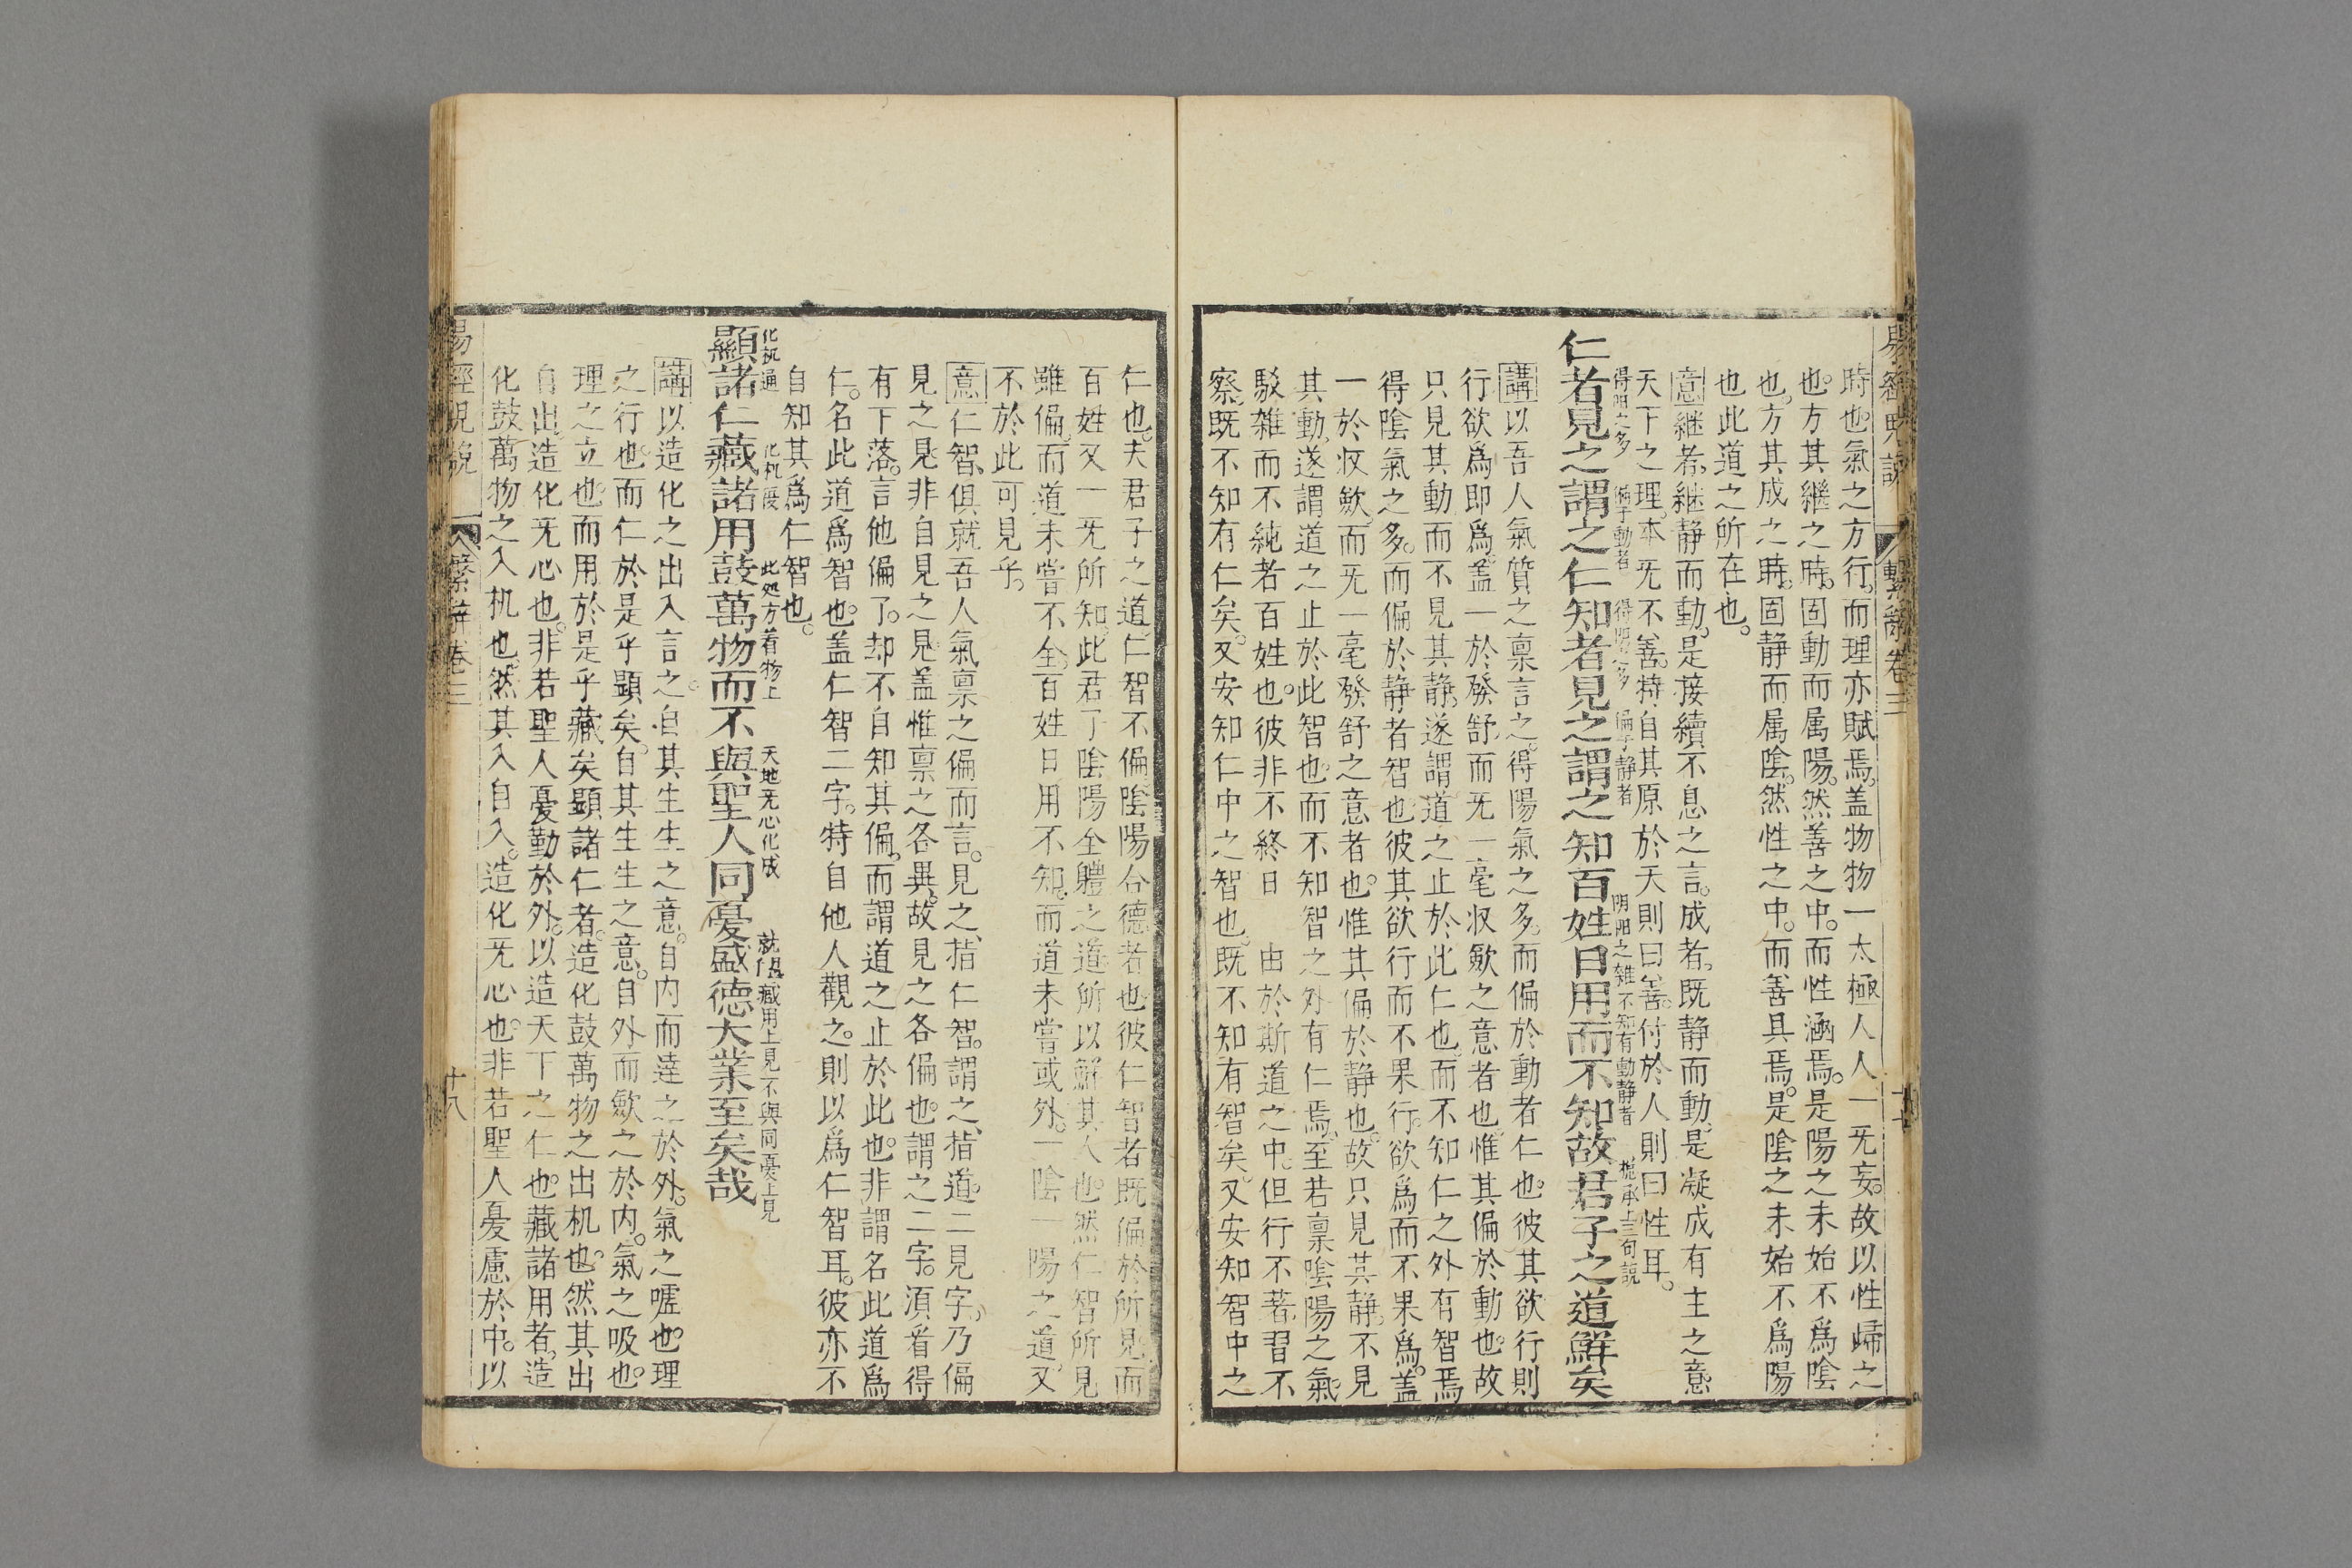 時也。氣之方行。而理亦賦焉。盖物物一太極人人一旡妄。故以性歸之
也。方其繼之時。固動而属陽。然善之中。而性涵焉。是陽之未始不爲陰
也。方其成之時。固静而属陰。然性之中。而善具焉。是陰之未始不爲陽
也此道之所在也。
意継者。継静而動。是接續不息之言。成者。既静而動。是凝成有主之意
天下之理。本旡不善。特自其原於天則曰善。付於人則曰性耳。
得陽之多 偏于動者 得陰之多 偏于静者 阴阳之雑不知有動静者 緫承上三句說
仁者見之謂之仁知者見之謂之知百姓日用而不知故君子之道鮮矣
講以吾人氣質之禀言之。得陽氣之多。而偏於動者仁也。彼其欲行則
行欲爲即爲。盖一於發舒。而旡一毫収歛之意者也。惟其偏於動也。故
只見其動而不見其静。遂謂道之止於此仁也。而不知仁之外有智焉
得陰氣之多。而偏於静者智也彼其欲行而不果行。欲爲而不果爲。盖
一於収歛。而旡一毫發舒之意者也。惟其偏於静也。故只見其静。不見
其動。遂謂道之止於此智也。而不知智之外有仁焉。至若禀陰陽之氣
駁雜而不純者百姓也。彼非不終日 由於斯道之中。但行不著。習不
察。既不知有仁矣。又安知仁中之智也。既不知有智矣。又安知智中之
仁也。夫君子之道。仁智不偏。陰陽合德者也彼仁智者既偏於所見而
百姓又一旡所知。此君子陰陽全體之道。所以鮮其人也。然仁智所見
雖偏。而道未嘗不全。百姓日用不知。而道未嘗或外。一陰一陽之道。又
不於此可見乎。
意仁智。俱就吾人氣禀之偏而言。見之、指仁智。謂之、指道。二見字。乃偏
見之見。非自見之見。盖惟禀之各異。故見之各偏也。謂之二字。須看得
有下落。言他偏了。却不自知其偏。而謂道之止於此也。非謂名此道爲
仁。名此道爲智也。盖仁智二字。特自他人觀之。則以爲仁智耳。彼亦不
自知其爲仁智也。
化机通 化机復 此処方着物上 天地旡心化成 就顕藏用上見不與同憂上見
顯諸仁藏諸用鼓萬物而不與聖人同憂盛德大業至矣哉
講以造化之出入言之。自其生生之意。自内而達之於外。氣之嘘也。理
之行也。而仁於是乎顯矣。自其生生之意。自外而歛之於内。氣之吸也。
理之立也。而用於是乎藏矣顯諸仁者。造化鼓萬物之出机也。然其出
自出。造化旡心也。非若聖人憂勤於外。以造天下之仁也。藏諸用者。造
化鼓萬物之入机也。然其入自入。造化旡心也。非若聖人憂慮於中。以
十八